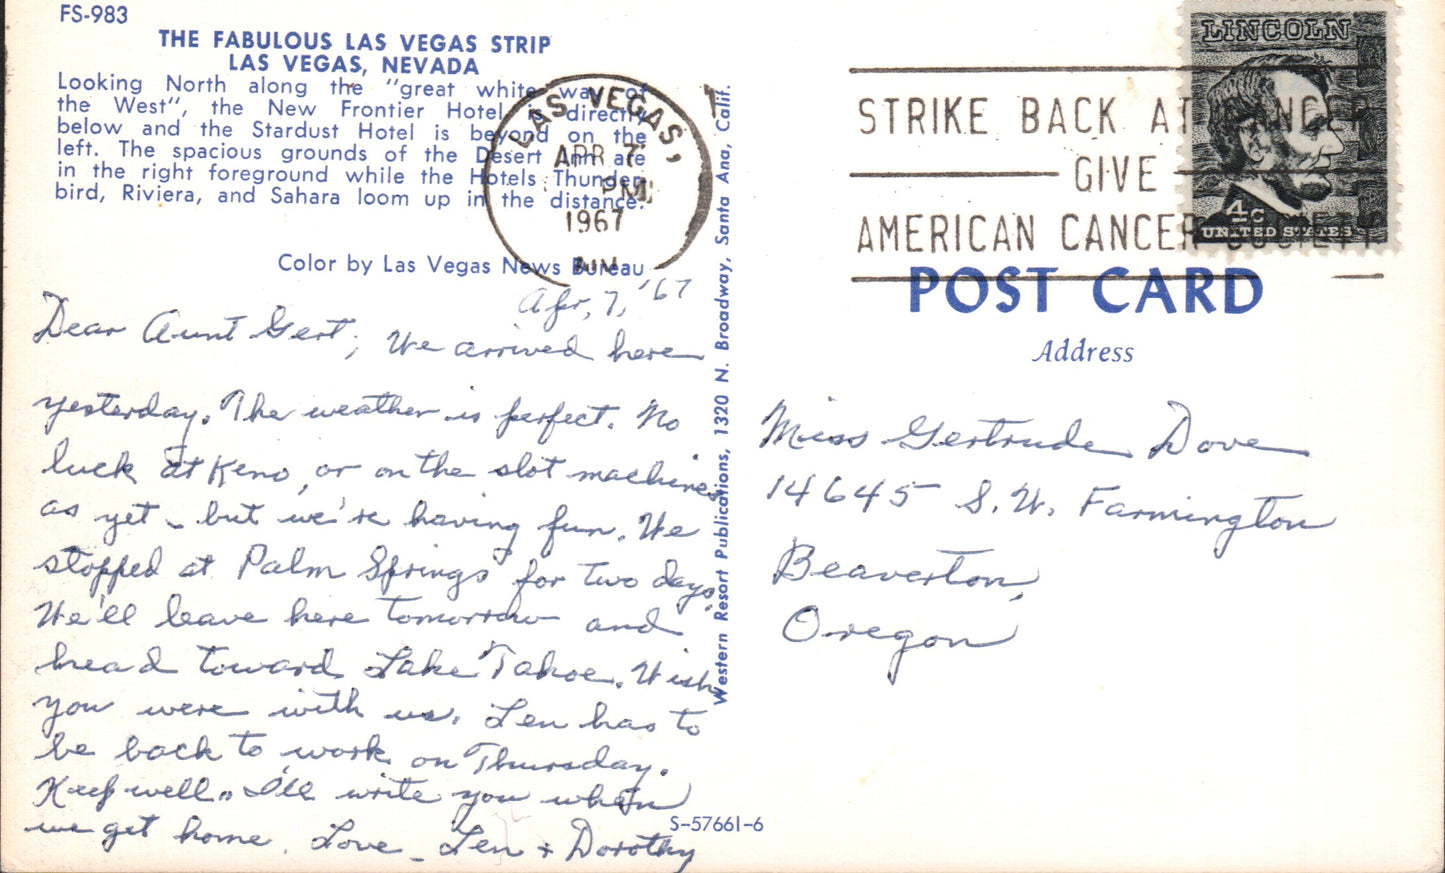 FS-983
THE FABULOUS LAS VEGAS STRIP
LAS VEGAS, NEVADA
Looking North along the "great white way of
the West", the New Frontier Hotel is directly
below and the Stardust Hotel is beyond on the
left. The spacious grounds of the Desert Inn are
in the right foreground while the Hotels Thunder-
bird, Riviera, and Sahara loom up in the distance.
Color by Las Vegas News Bureau
LAS VEGAS,
APR 7
PM
1967
Apr, 7, '67
Dear Aunt Gert, We arrived here
yesterday. The weather is perfect. No
luck at Keno, or on the slot machines
as yet - but we're having fun. We
stopped at Palm Springs for two days.
We'll leave here tomorrow and
head toward Lake Tahoe. Wish
you were with us. Len has to
be back to work on Thursday.
Keep well.. I'll write you when
we get home. Love - Len + Dorothy
S-57661-6
Western Resort Publications, 1320 N. Broadway, Santa Ana, Calif.
STRIKE BACK AT CANCER
GIVE
AMERICAN CANCER SOCIETY
LINCOLN
4c
UNITED STATES
POST CARD
Address
Miss Gertrude Dove
14645 S.W. Farmington
Beaverton,
Oregon